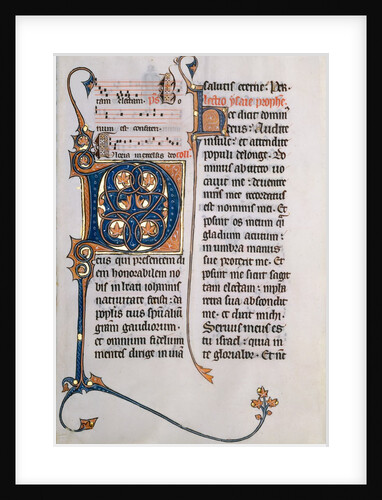 tam electam. ps Bo
num est confiteri.
Gloria in excelsis deo coll.
D
eus qui presentem di
em honorabilem no
bis in beati iohannis
natiuitate fecisti: da
populis tuis spūaliū
grām gaudiorum.
et omnium fidelium
mentes dirige in uiā
salutis eterne. Per.
Lectio ysaie prophe
Hec dicit domin
deus: Audite
insule: et attendite
populi delonge. Do
minus abutero uo
cauit me: deuentre
mris mee recordatus
est nominis mei. Et
posuit os meum qi
gladium acutum:
in umbra manus
sue protexit me. Et
posuit me sicut sagit
tam electam: in pha
retra sua abscondit
me. et dixit michi.
Seruus meus es
tu israel: quia in
te gloriabor. Et nūc